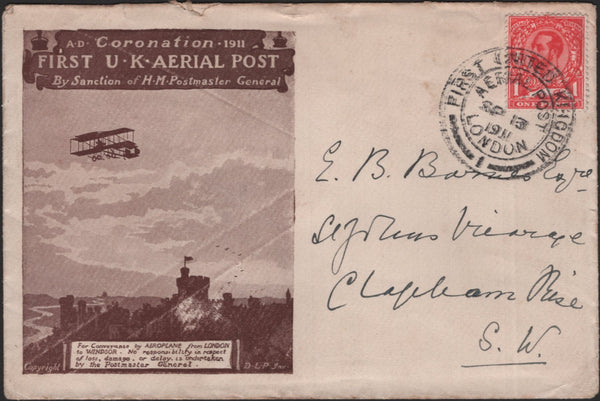 A·D· Coronation ·1911
FIRST U·K·AERIAL POST
By Sanction of H·M·Postmaster General
For Conveyance by AEROPLANE from LONDON
to WINDSOR. No responsibility in respect
of loss, damage, or delay, is undertaken
by the Postmaster General.
Copyright
D·L·P·Inv
FIRST UNITED KINGDOM
AERIAL POST
SP 13
1911
LONDON
1
1 ONE 1
E. B. Esqre
St Johns Vicarage
Clapham Rise
S. W.